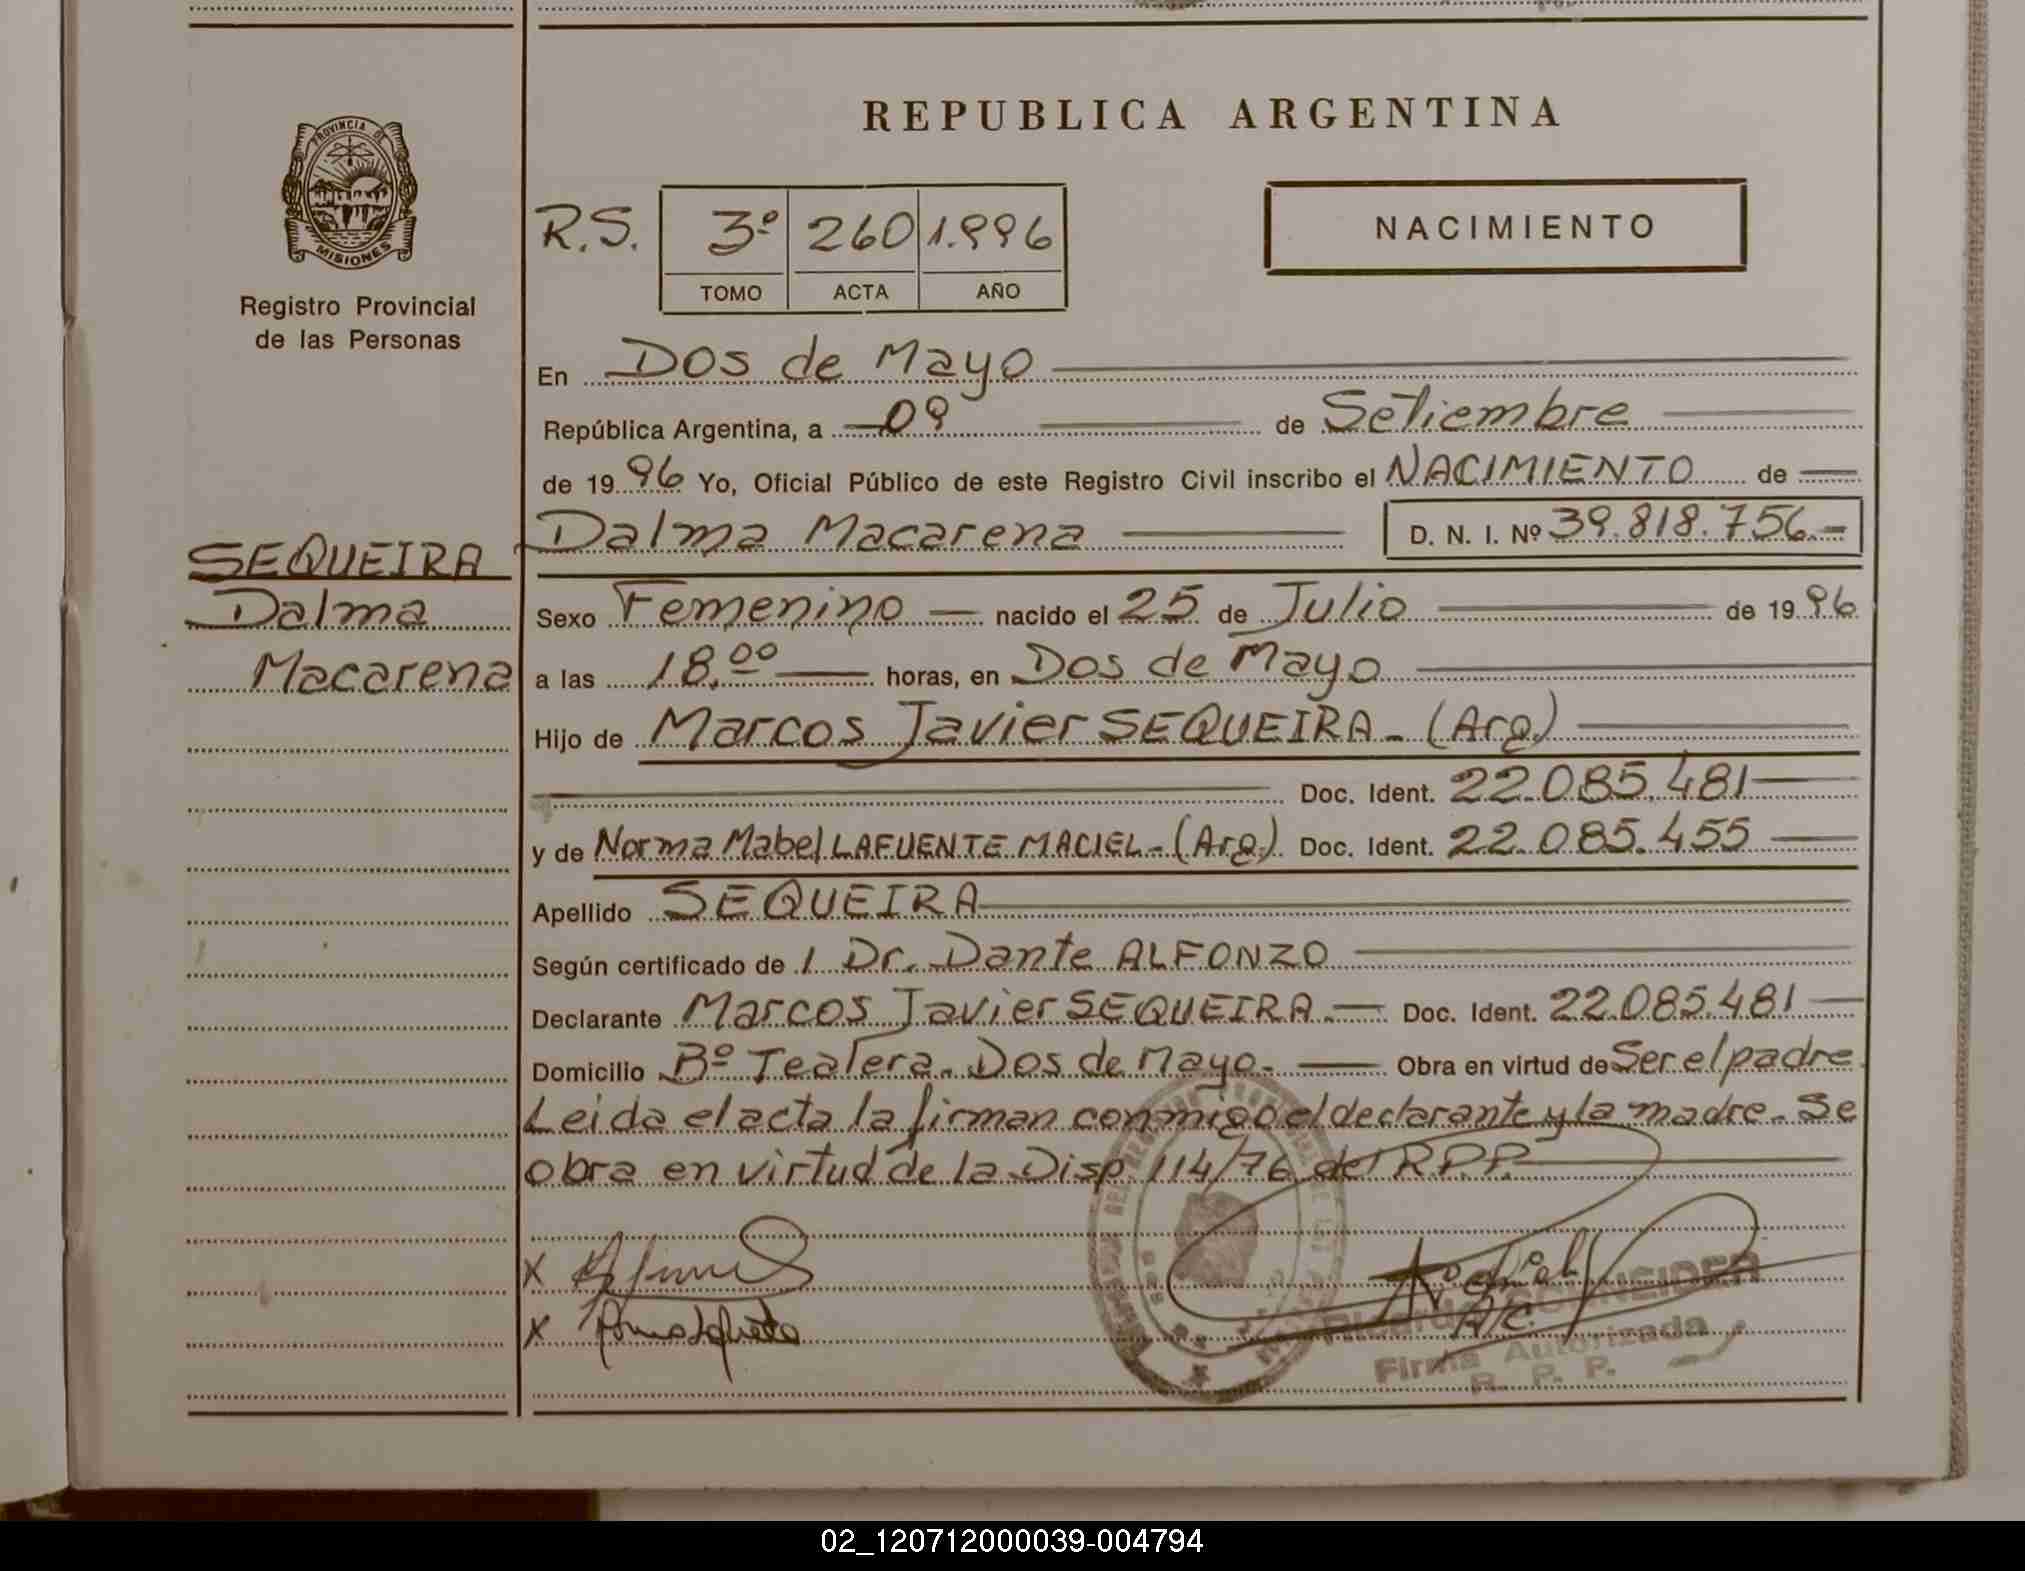 REPUBLICA ARGENTINA
PROVINCIA DE
MISIONES
Registro Provincial
de las Personas
R.S. 3º 260 1.996
TOMO ACTA AÑO
NACIMIENTO
En Dos de Mayo
República Argentina, a 09 de Setiembre
de 1996 Yo, Oficial Público de este Registro Civil inscribo el NACIMIENTO de
SEQUEIRA
Dalma
Macarena
Dalma Macarena D. N. I. Nº 39.818.756.-
Sexo Femenino nacido el 25 de Julio de 1996
a las 18.00 horas, en Dos de Mayo
Hijo de Marcos Javier SEQUEIRA - (Arg)
Doc. Ident. 22.085.481
y de Norma Mabel LAFUENTE MACIEL - (Arg.) Doc. Ident. 22.085.455
Apellido SEQUEIRA
Según certificado de / Dr. Dante ALFONZO
Declarante Marcos Javier SEQUEIRA.- Doc. Ident. 22.085.481
Domicilio Bº Tealera. Dos de Mayo. Obra en virtud de Ser el padre.
Leida el acta la firman conmigo el declarante y la madre. Se
obra en virtud de la Disp. 114/76 del R.P.P.
X
X
A/C.
Ricardo SCHNEIDER
Firma Autorizada
R. P. P.
02_120712000039-004794